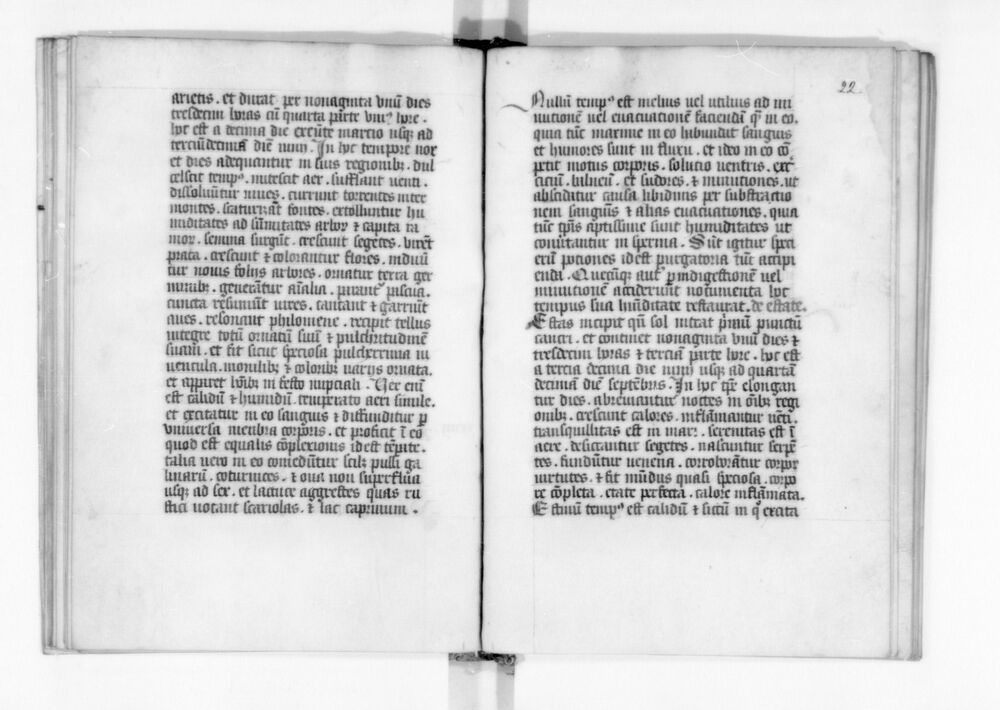 arietis . et durat per nonaginta vnū dies
tresdecim horas cū quarta parte vniꝰ hore .
hoc est a decima die exeūte marcio usqꝫ ad
terciūdecimā diē iunij . In hoc tempore nox
et dies adequantur in suis regionibꝫ . dul
cescit tempꝰ . mitescit aer . sufflant venti .
dissoluūtur niues . currunt torrentes inter
montes . scaturiāt fontes . extolluntur hu
miditates ad sūmitates arboꝝ ⁊ capita ra
moꝝ . semina surgūt . crescunt segetes . virēt
prata . crescunt ⁊ colorantur flores . induūt
tur nouis folijs arbores . ornatur terra ger
minibꝫ . generātur aīalia . parant᷑ pascua .
cuncta resumunt vires . cantant ⁊ garriunt
aues . resonant philomene . recipit tellus
integre totū ornatū suū ⁊ pulchritudinem
suam . et fit sicut speciosa pulcherrima iu
uencula . monilibꝫ ⁊ coloribꝫ varijs ornata .
et apparet hoībꝫ in festo nupciali . Ver enī
est calidū ⁊ humidū . temperato aeri simile .
et excitatur in eo sanguis ⁊ diffunditur ꝑ
vniuersa membra corporis . et proficit ī eo
quod est equalis cōplexionis id est tēperate .
talia vero in eo comedūtur scilꝫ pulli ga
linarū . coturnices . ⁊ oua non superflua
usqꝫ ad sex . et lactuce aggrestes quas ru
stici vocant scariolas . ⁊ lac caprinum .
22
Nullū tempꝰ est melius uel utilius ad mi
nutionē uel euacuationē faciendū qᷓ in eo .
quia tūc maxime in eo habundat sanguis
et humores sunt in fluxu . et ideo in eo cō
petit motus corporis . solucio ventris . exer
cicium . balneū . et sudores . ⁊ minutiones . ut
abscidatur causa libidinis per substractio
nem sanguis ⁊ alias euacuationes . quia
tūc tꝑis aptissime sunt humiditates ut
conuertantur in sperma . Sūt igitur speci
erū pociones id est purgatoria tūc accipi
enda . Quecūqꝫ aut᷑ ꝑ indigestionē uel
minutionē acciderunt nocumenta hoc
tempus sua humiditate restaurat . de estate .
Estas incipit qn̄ sol intrat pͥmū punctū
cancri . et continet nonaginta vnū dies ⁊
tresdecim horas ⁊ terciā parte hore . hoc est
a tercia decima die iunij usqꝫ ad quartā
decimā diē septēbris . In hoc tꝑe elongan
tur dies . abreuiantur noctes in oībꝫ regi
onibꝫ . crescunt calores . inflāmantur uēti .
tranquillitas est in mari . serenitas est ī
aere . desiccantur segetes . nascuntur serpē
tes . fundūtur venena . corroborātur corpoꝝ
virtutes . ⁊ fit mūdus quasi speciosa . corpo
re cōpleta . etate perfecta . calore inflāmata .
Estiuū tempꝰ est calidū ⁊ siccū in qͦ excita